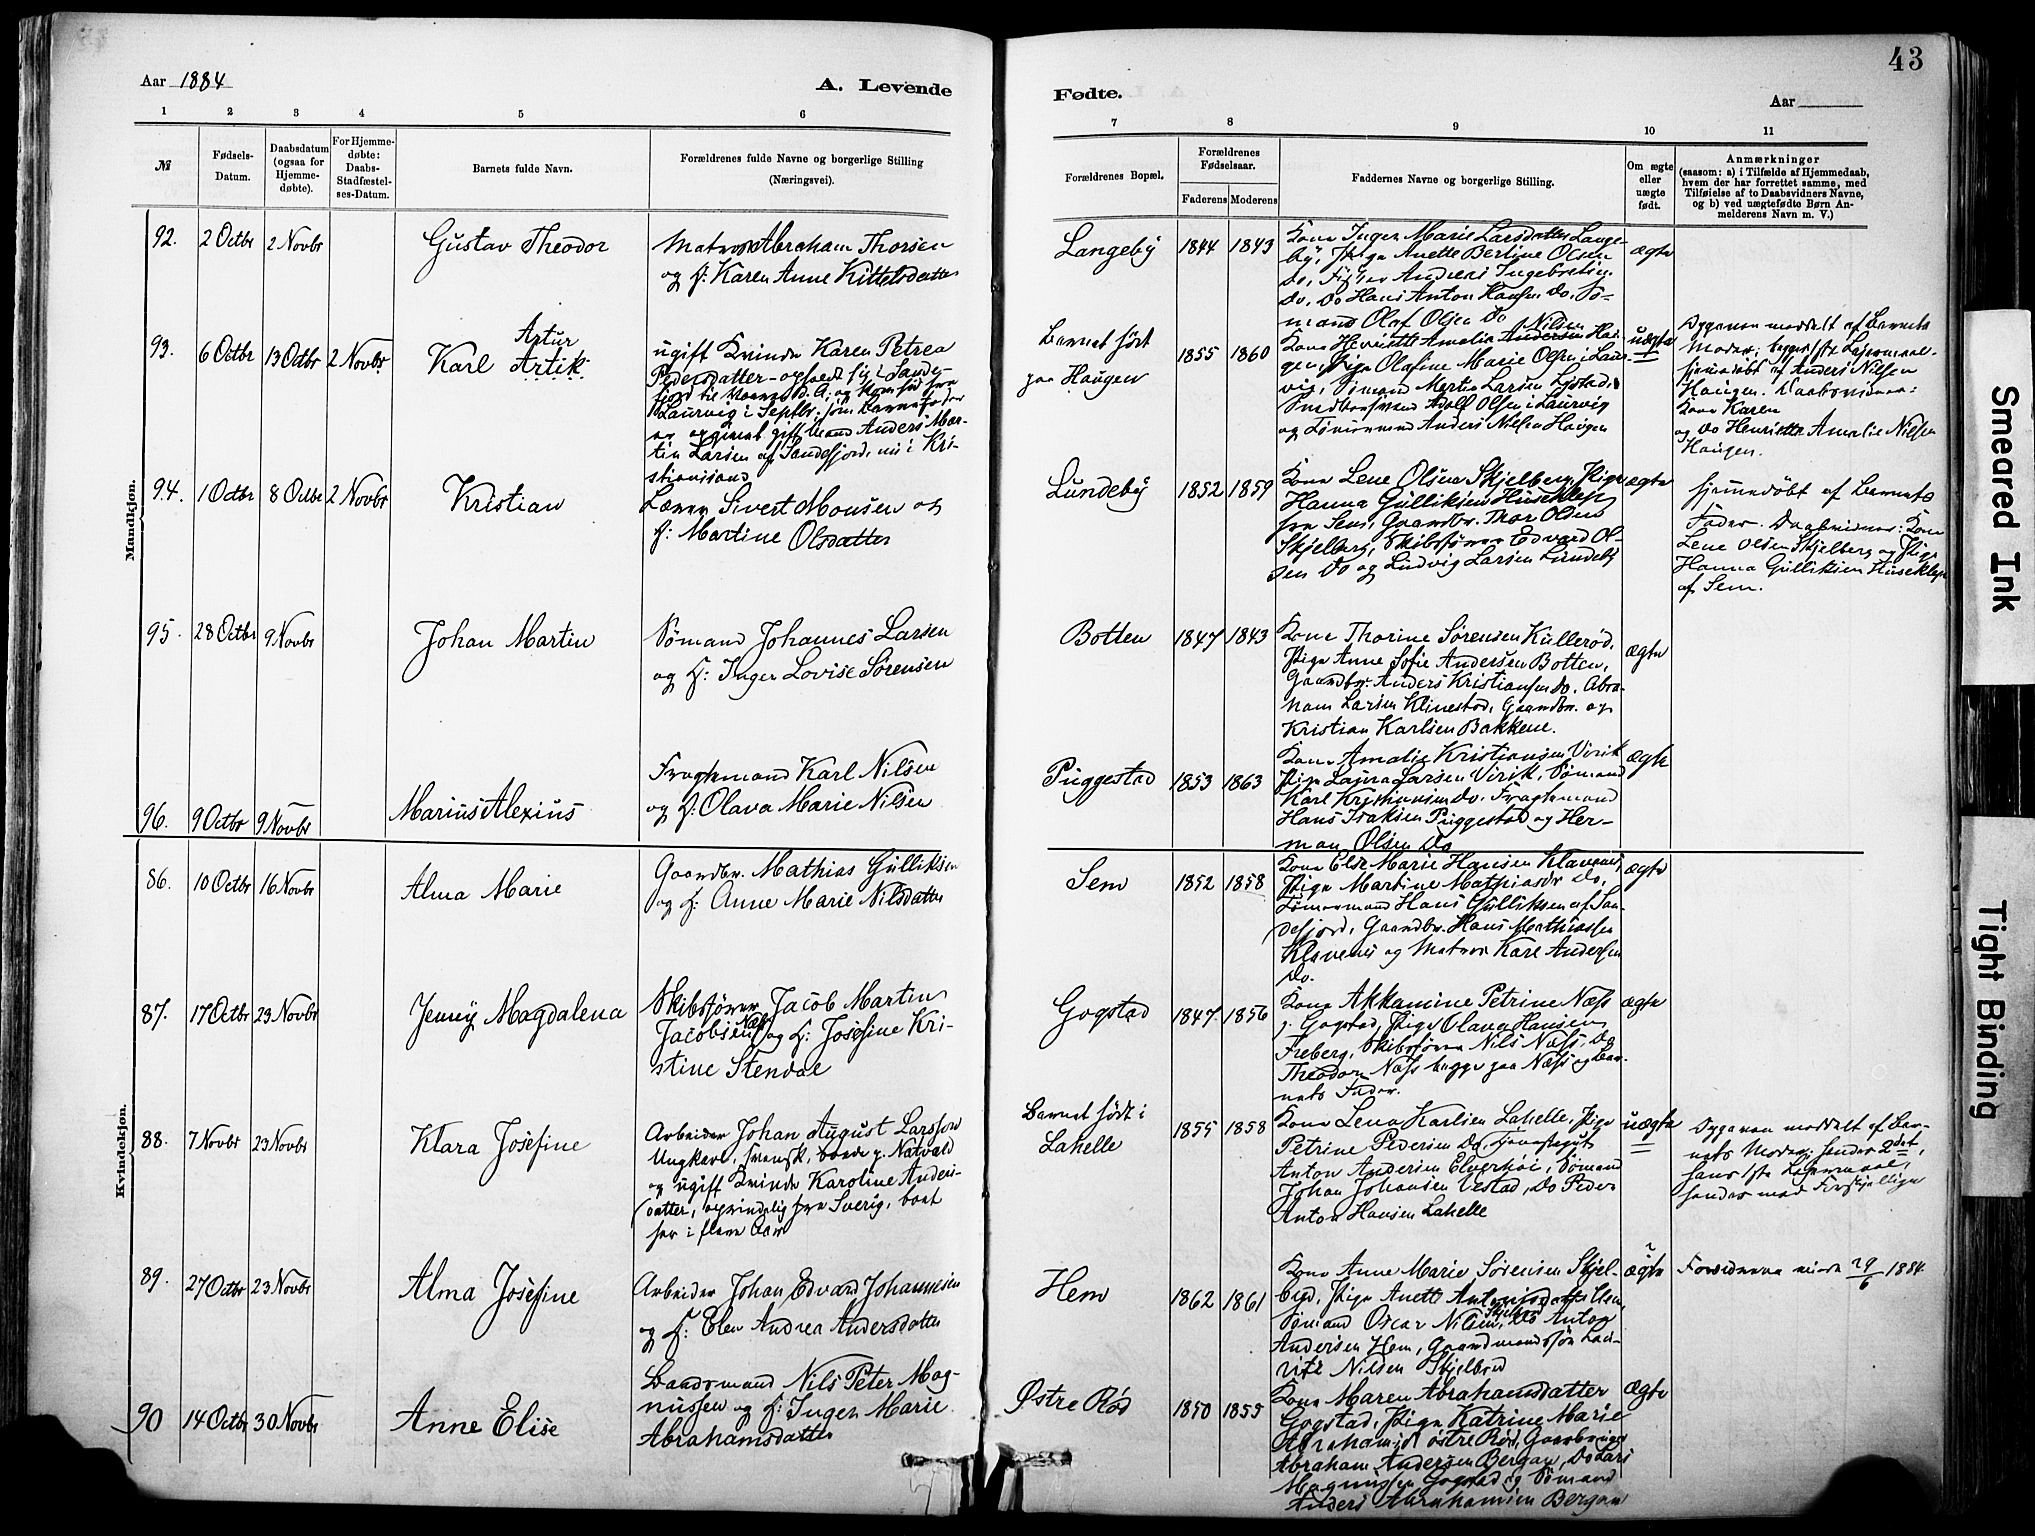 43
Aar 1884
A. Levende
Fødte.
Aar
1 2 3 4 5 6 7 8 9 10 11
№
Fødsels-
Datum.
Daabsdatum
(ogsaa for
Hjemme-
døbte).
For Hjemme-
døbte:
Daabs-
Stadfæstel-
ses-Datum.
Barnets fulde Navn.
Forældrenes fulde Navne og borgerlige Stilling
(Næringsvei).
Forældrenes Bopæl.
Forældrenes
Fødselsaar.
Faderens Moderens
Faddernes Navne og borgerlige Stilling.
Om ægte
eller
uægte
født.
Anmærkninger
(saasom: a) i Tilfælde af Hjemmedaab,
hvem der har forrettet samme, med
Tilføielse af to Daabsvidners Navne,
og b) ved uægtefødte Børn An-
melderens Navn m. V.)
Mandkjøn.
92. 2 Octbr 2 Novbr Gustav Theodor
Matros Abraham Thorsen
og H: Karen Anne Kittelsdatter
Langeby 1844 1843
Kone Inger Marie Larsdatter Lange-
by, Pige Anette Bertine Olsen
Do, Andreas Ingebretsen
Do, Do Hans Anton Hansen Do, Sø-
mand Olaf Olsen Do
ægte
93. 6 Octbr 13 Octbr 2 Novbr
Artur
Karl Artik
ugift Kvinde Karen Petrea
Pedersdatter - opholdt sig i Sande-
fjord til
Laurvig i Septbr. som Barnefader
er opgivet gift Mand Anders Mar-
tin Larsen af Sandefjord, nu i Kri-
stianssand
Barnet født
paa Haugen
1855 1860
Nilsen
Kone Henriette Amalie Andersen Hau-
gen, Pige Olafine Marie Olsen i Laur-
vig, Sømand Martin Larsen
Adolf Olsen i Laurvig
og Tømmermand Anders Nilsen Haugen
uægte
meddelt af Barnets
Moder; begges 1ste Leiermaal.
Hjemmedøbt af Anders Nilsen
Haugen. Daabsvidner:
Kone Karen
og Do Henriette Amalie Nilsen
Haugen.
94. 1 Octbr 8 Octbr 2 Novbr Kristian
Lærer Sivert Monsen og
H: Martine Olsdatter
Lundeby 1852 1859
Kone Lene Olsen Skjelberg, Pige
Hanna Gulliksen Huseklep
fra Sem, Gaardbr. Thor Olsen
Skjelberg, Skibsfører Edvard Ol-
sen Do og Ludvig Larsen Lundeby
ægte
Hjemmedøbt af Barnets
Fader. Daabsvidner: Kone
Lene Olsen Skjelberg og Pige
Hanna Gulliksen Huseklep
af Sem.
95. 28 Octbr 9 Novbr Johan Martin
Sømand Johannes Larsen
og H: Inger Lovise Sørensen
Botten 1847 1843
Kone Thorine Sørensen Kullerød,
Pige Anne Sofie Andersen Botten,
Gaardbr. Anders Kristiansen Do, Abra-
ham Larsen Klinestad, Gaardbr. og
Kristian Karlsen Bakkene.
ægte
96. 9 Octbr 9 Novbr Marius Alexius
Fragtemand Karl Nilsen
og H: Olava Marie Nilsen
Puggestad 1853 1863
Kone Amalie Kristiansen Virik
Pige Laura Larsen Virik, Sømand
Karl Kristiansen Do, Fragtemand
Hans Isaksen Puggestad og Her-
man Olsen Do
ægte
Kvindekjøn.
86. 10 Octbr 16 Novbr Alma Marie
Gaardbr. Mathias Gulliksen
og H: Anne Marie Nilsdatter
Sem 1852 1858
Kone Else Marie Hansen Klavenes,
Pige Martine Mathiasdr Do,
Tømmermand Hans Gulliksen af San-
defjord, Gaardbr. Hans Mathiassen
Klavenes og Matros Karl Andersen
Do.
ægte
87. 17 Octbr 23 Novbr Jenny Magdalena
Skibsfører Jacob Martin
Jacobsen Næss og H: Josefine Kri-
stine Stendal
Gogstad 1847 1856
Kone Akkamine Petrine Næss
g. Gogstad, Pige Olava Hansen
Freberg, Skibsfører Nils Næss, Do
Theodor Næss begge paa Næss og Bar-
nets Fader.
ægte
88. 7 Novbr 23 Novbr Klara Josefine
Arbeider Johan August Larsson
Ungkarl, svensk, boede p. Natvald
og ugift Kvinde Karoline Anders-
datter, oprindelig fra Sverig, boet
her i flere Aar
Barnet født i
Lahelle
1855 1858
Kone Lena Karlsen Lahelle, Pige
Petrine Pedersen Do, Tjenestegut
Anton Andersen Elverhøi, Sømand
Johan Johansen Vestad, Do Peder
Anton Hansen Lahelle
uægte
meddelt af Bar-
nets Moder; hendes 2det,
hans 1ste Leiermaal,
hendes med Forskjellige
89. 27 Octbr 23 Novbr Alma Josefine
Arbeider Johan Edvard Johannesen
og H: Elen Andrea Andersdatter
Hem 1862 1861
Kone Anne Marie Sørensen Skjel-
brød, Pige Anette Antonsdatter Hem,
Sømand Oscar Nilsen Skjelbrød, Do Anton
Andersen Hem, Gaardmandssøn Lau-
ritz Nilsen Skjelbrød
ægte
Forældrene viede 29/6 1884.
90 14 Octbr 30 Novbr Anne Elise
Baadsmand Nils Peter Mag-
nussen og H: Inger Marie
Abrahamsdatter
Østre Rød 1850 1855
Kone Maren Abrahamsdatter
Gogstad, Pige Katrine Marie
Abrahamsd. østre Rød, Gaardbruger
Abraham Andersen Bergan, Do Lars
Magnussen Gogstad og Sømand
Anders Abrahamsen Bergan
ægte
Smeared Ink
Tight Binding